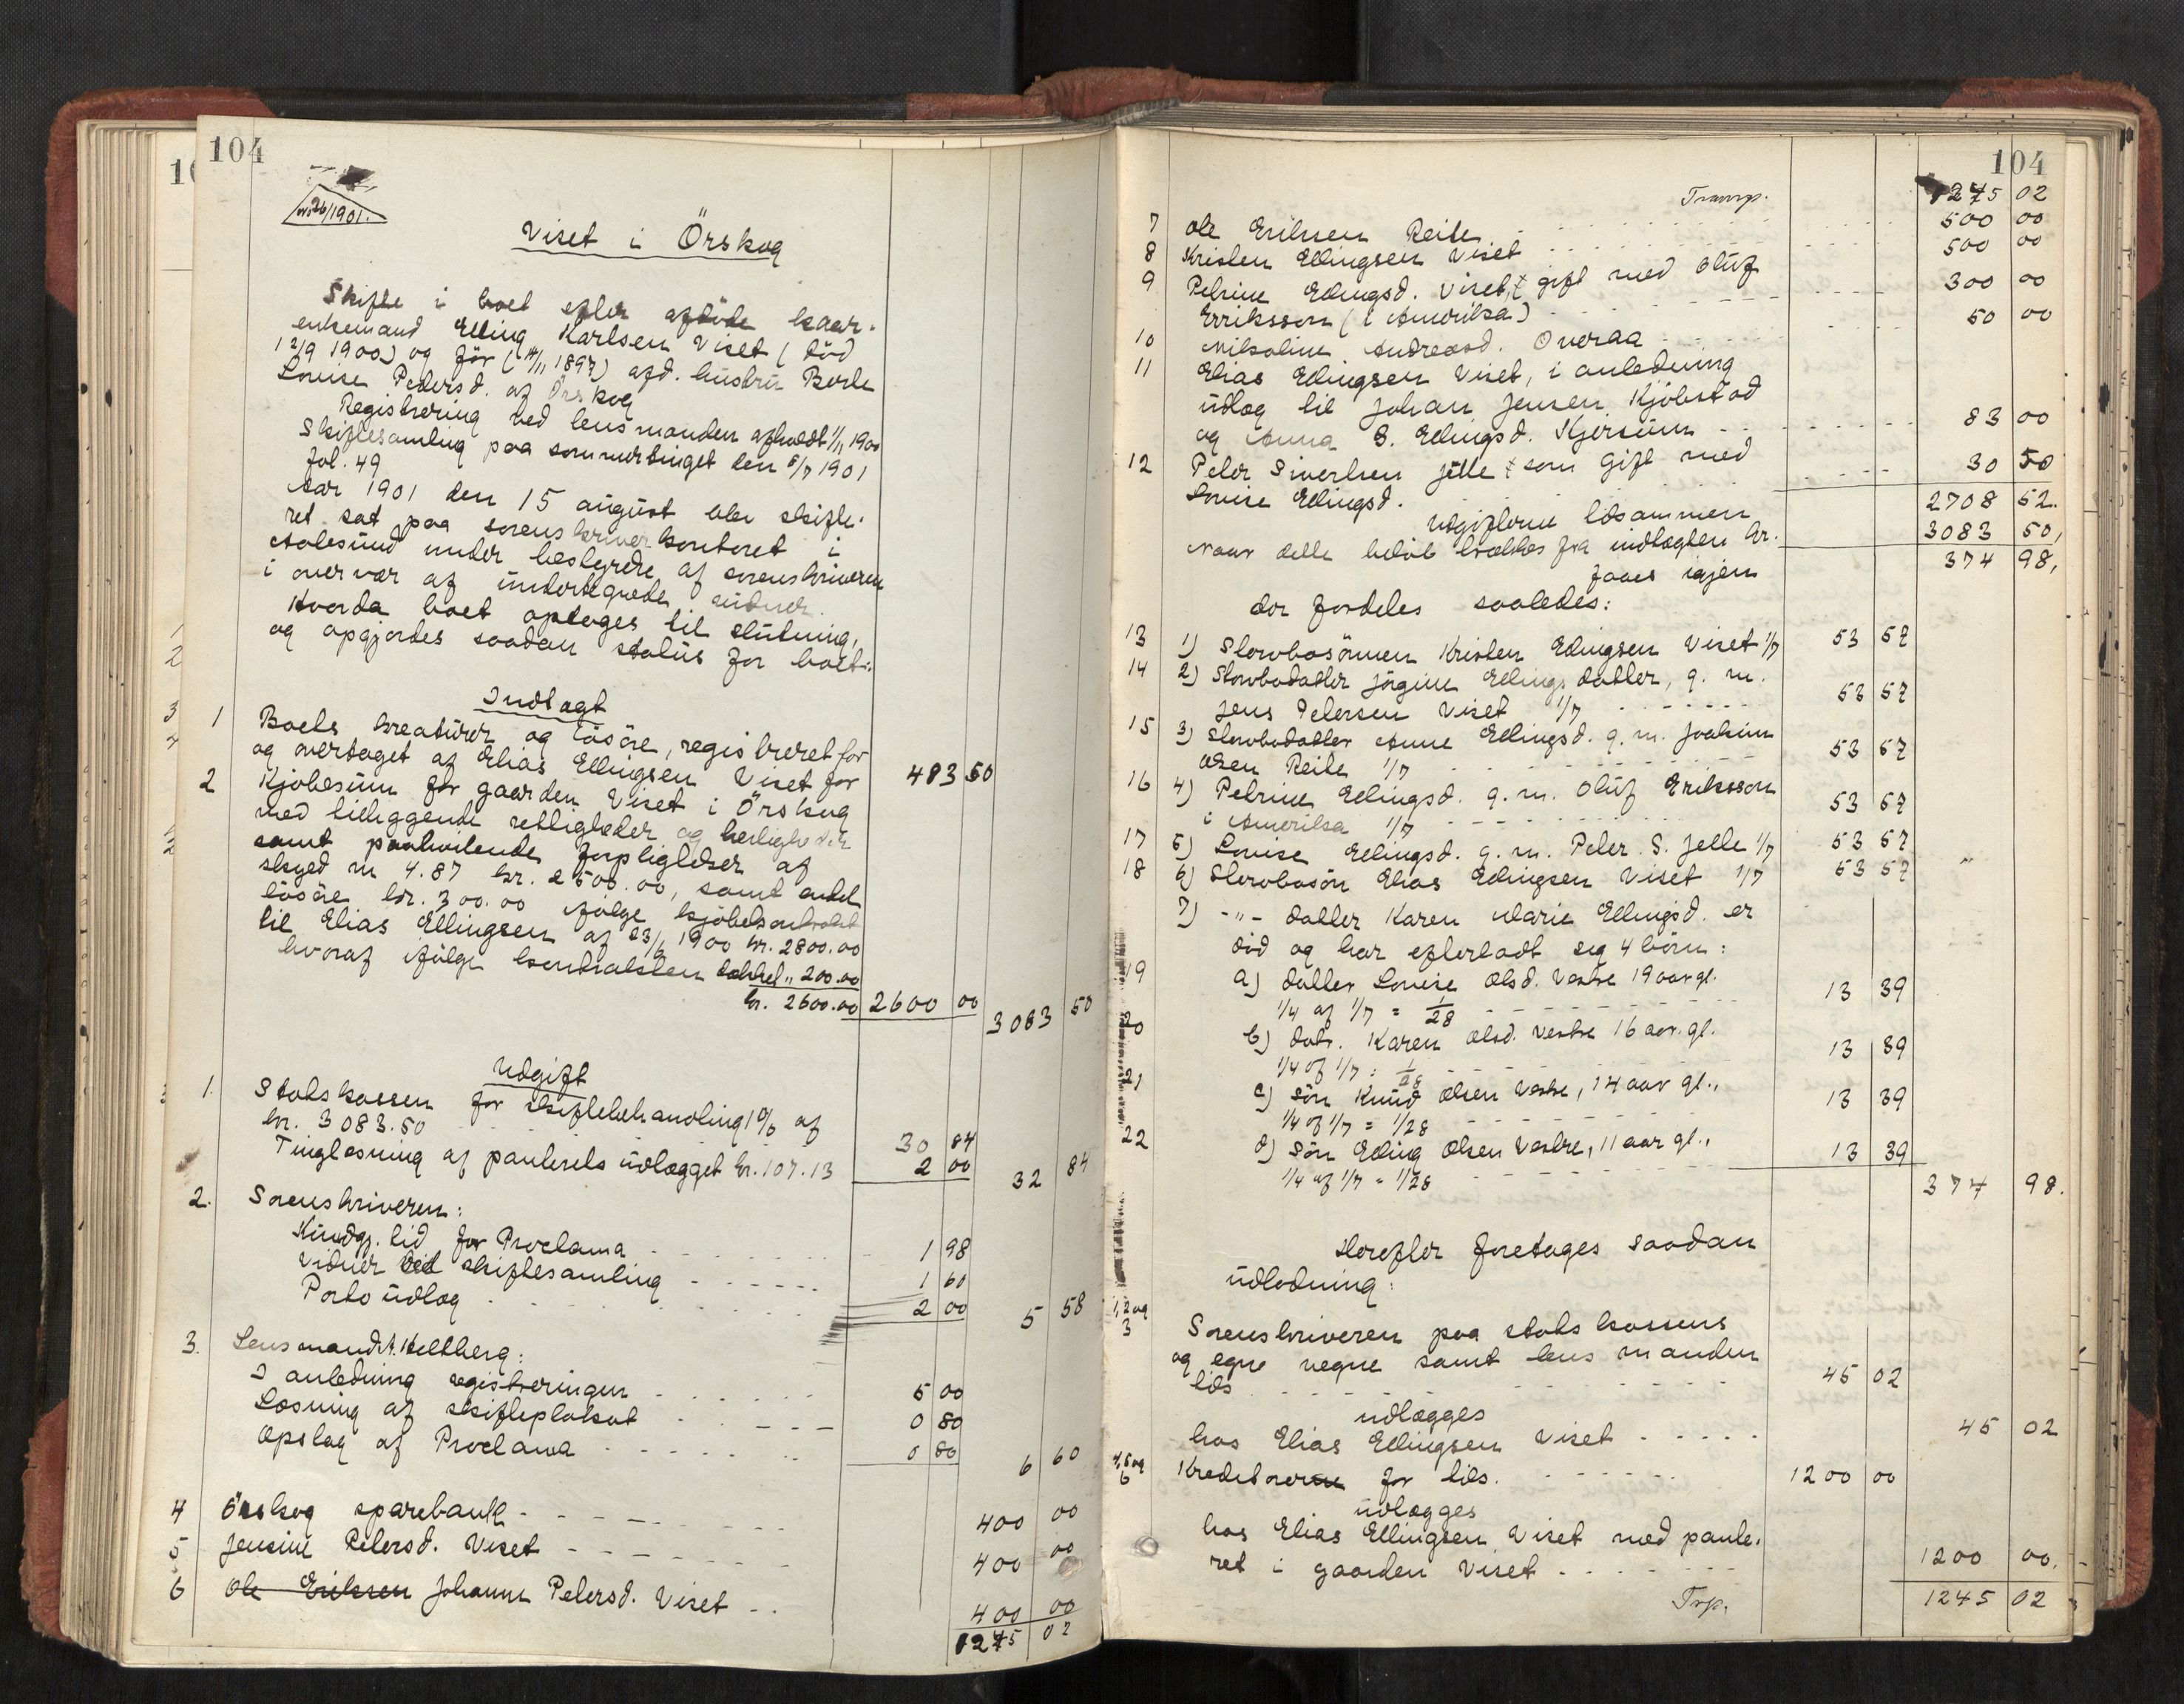 104
No 26/1901.
Viset i Örskog
Skifte i boet efter afdöde kaar-
enkemand Elling Karlsen Viset (död
12/9 1900) og för (14/11 1897) afd. hüstrü Berte
Louise Pedersd. af Örskog
Registrering ved lensmanden afholdt 1/11 1900
Skiftesamling paa sommertinget den 5/7 1901
fol. 49
Aar 1901 den 15 august blev skifte-
ret sat paa sorenskriverkontoret i
Aalesund under bestyrelse af sorenskriveren
i overvær af undertegnede vidner.
Hvorda boet optoges til slutning,
og opgjordes saadan status for boet:
Indtægt
1 Boets kreatürer og lösöre, registreret for
og overtaget af Elias Ellingsen Viset for 483 50
2 Kjöbesüm for gaarden Viset i Örskog
med tilliggende rettigheder og herligheder
samt paahvilende forpligtelser af
skyld m 4.87 kr. 2500.00, samt endel
lösöre kr. 300.00 ifölge kjöbekontrakt
til Elias Ellingsen af 23/6 1900 kr. 2800.00
hvoraf ifölge kontrakten " 200.00
kr. 2600.00 2600 00 3083 50
Udgift
1. Statskassen for skiftebehandling 1% af
kr. 3083.50 30 84
Tinglæsning af panterets udlægget kr. 107.13 2 00 32 84
2. Sorenskriveren:
Kundgj. tid for Proclama 1 98
Vidner ved skiftesamling 1 60
Porto üdlæg 2 00 5 58
3. Lensmand A. Heltberg:
I anledning registreringen 5 00
Læsning af skifteplakat 0 80
Opslag af Proclama 0 80 6 60
4 Örskog sparebank 400 00
5 Jensine Petersd. Viset 400 00
6 Ole Eriksen Johanne Petersd. Viset 400 00
1245 02
104
Transp. 1245 02
7 Ole Eriksen Reite 500 00
8 Kristen Ellingsen Viset 500 00
9 Petrine Ellingsd. Viset, gift med Olüf
Erriksson (i Amerika) 300 00
10 Nikoline Andreasd. Overaa 50 00
11 Elias Ellingsen Viset, i anledning
üdlæg til Johan Jensen Kjöbstad
og Anna S. Ellingsd. Kjersem 83 00
12 Peter Sivertsen Jelle som gift med
Louise Ellingsd. 30 50
Udgifterne tilsammen 2708 52.
Naar dette belöb trækkes fra indtægten kr. 3083 50,
faaes igjen 374 98,
der fordeles saaledes:
13 1) Stervbosönnen Kristen Ellingsen Viset 1/7 53 57
14 2) Stervbodatter Jörgine Ellingsdatter, g. m.
Jens Petersen Viset 1/7 53 57
15 3) Stervbodatter Anne Ellingsd. g. m. Joakim
Olsen Reite 1/7 53 57
16 4) Petrine Ellingsd. g. m. Olüf Eriksson
i Amerika 1/7 53 57
17 5) Louise Ellingsd. g. m. Peter S. Jelle 1/7 53 57
18 6) Stervbosön Elias Ellingsen Viset 1/7 53 57
7) -"- datter Karen Marie Ellingsd. er
död og har efterladt seg 4 börn:
19 a) datter Louise Olsd. Vestre 19 aar gl.
1/4 af 1/7 = 1/28 13 39
20 b) datr. Karen Olsd. Vestre 16 aar. gl.
1/4 af 1/7 = 1/28 13 39
21 c) sön Knüd Olsen Vestre, 14 aar gl.,
1/4 af 1/7 = 1/28 13 39
22 d) sön Elling Olsen Vestre, 11 aar gl.,
1/4 af 1/7 = 1/28 13 39
374 98.
Herefter foretoges saadan
üdlodning:
1, 2 og 3 Sorenskriveren paa statskassens
og egne vegne samt lensmanden
tils 45 02
udlægges
hos Elias Ellingsen Viset 45 02
4, 5 og 6 Kreditorerne for tils. 1200 00
üdlægges
hos Elias Ellingsen Viset med pante-
ret i gaarden Viset 1200 00.
Trp. 1245 02